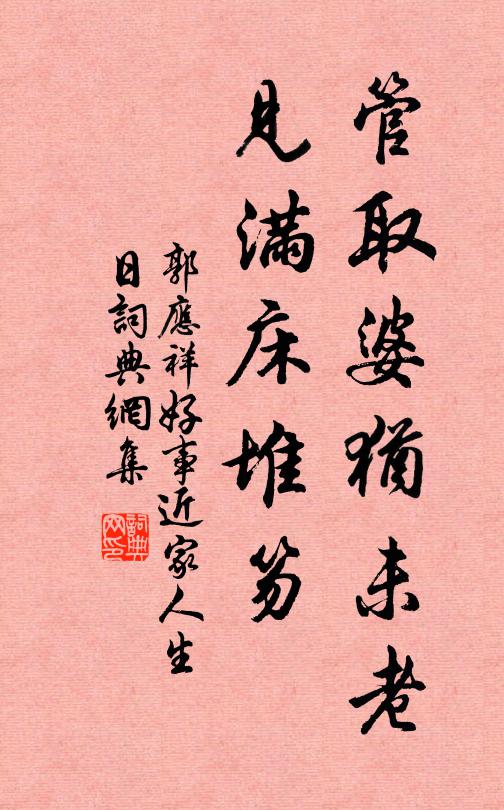 管取婆猶未老
見滿床堆笏
郭應祥好事近家人生
日詞典網集
詞典
网印